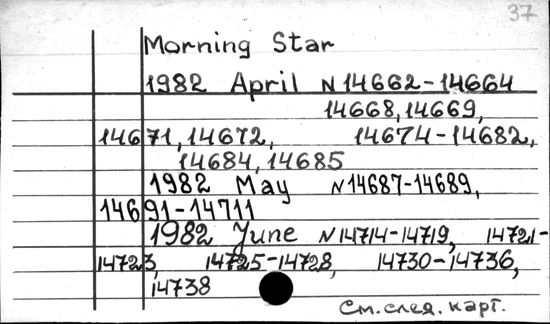 37
Morning Star
1982 April N 14662-14664
14668, 14669,
14671, 14672, 14674-14682,
14684, 14685
1982 May N 14687-14689,
14691-14711
1982 June N 14714-14719, 14721-
14723, 14725-14728, 14730-14736,
14738
См. след. карт.